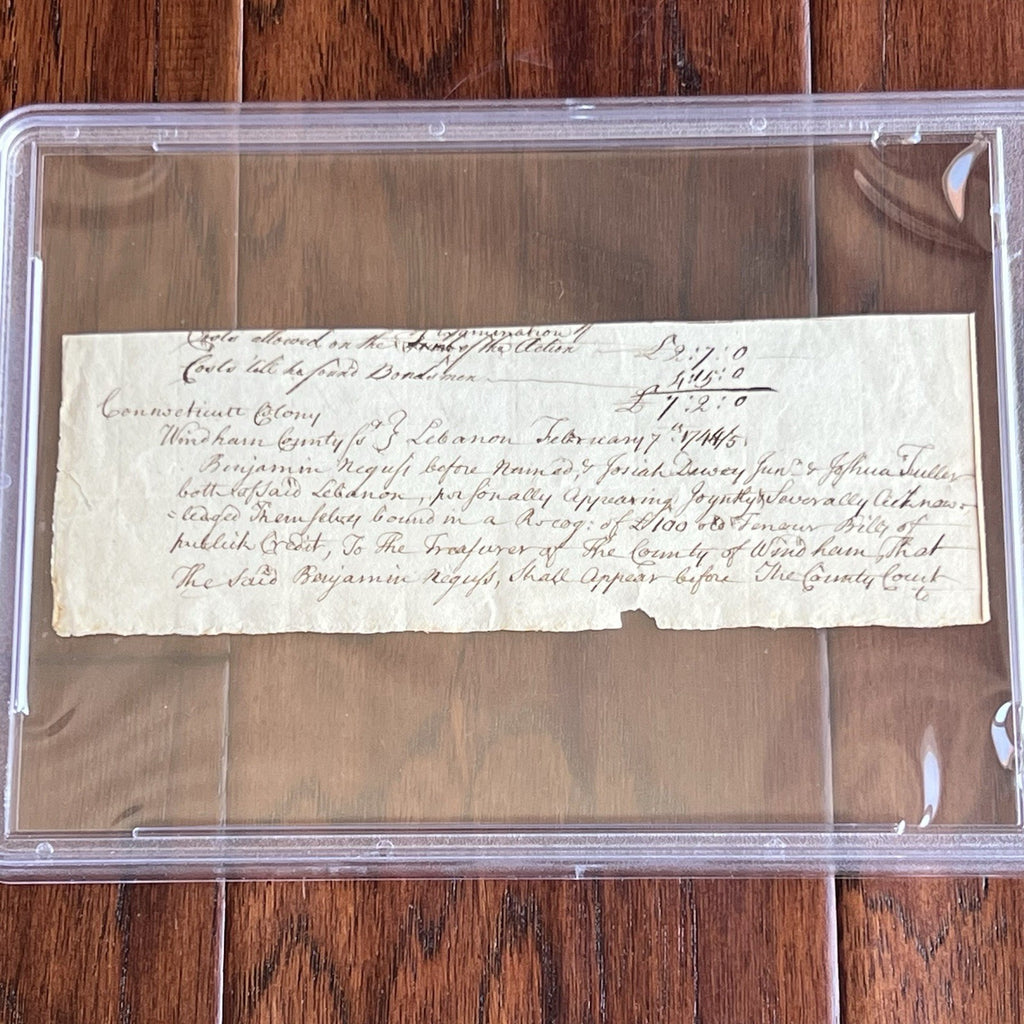 Examination of
Costs allowed on the of the Action £2:7:0
Costs till he found Bondsmen 4:15:0
£7:2:0
Connecticutt Colony
Windham County ss } Lebanon February 7th 1744/5
Benjamin Neguss before Named, & Josiah Dewey Junr & Joshua Fuller
both of Said Lebanon, personally Appearing Joyntly & Severally Acknow-
=ledged Themselves bound in a Recog: of £100 old Teneur Bills of
publick Credit, To The Treasurer of The County of Windham, That
The Said Benjamin Neguss, Shall Appear before The County Court